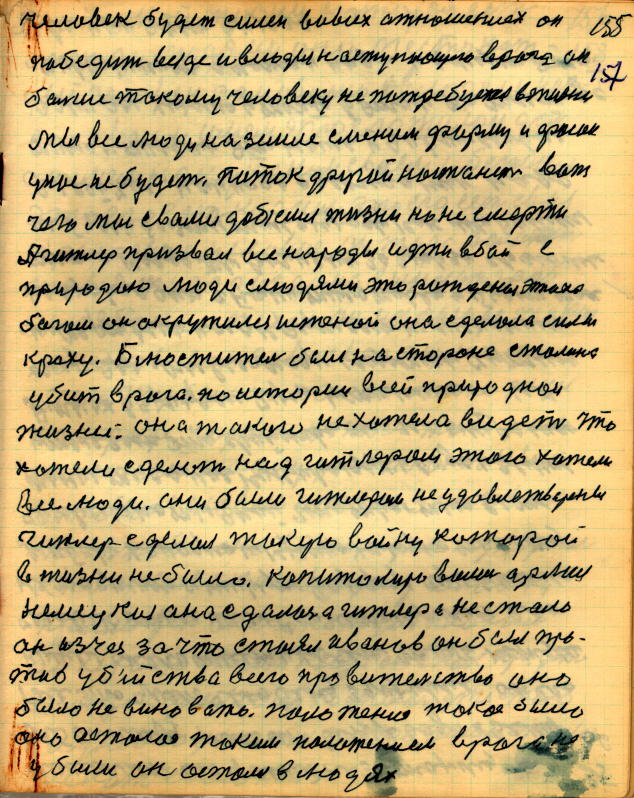 человек будет силен вових отношениях он 155
победит везде и всюду наступающего врага он 157
больше такому человеку не потребуется в жизни
мы все люди на земле сменим форму и
уное не будет. Поток другой настанет вот
чего мы с вами добьемся жизни но не смерти
А гитлер призвал все народы идти в бой с
природою люди слюдями это рождена
богом он окружился истеной она сделала силы
краху. был на стороне сталина
убит врага. по истории всей природной
жизни. она такого не хотела видеть что
хотели сделать над гитлером этого хотели
Все люди. они были гитлером не удовлетворены
Гитлер сделал такую войну которой
в жизни не было. капитолировали армия
немецкая она сдалась а гитлера не стало
он изчез за что стоял иванов он был про-
тив убийства всего правительство оно
было не виновато. положения такое было
оно осталось таким положением врага не
убили он остался в людях